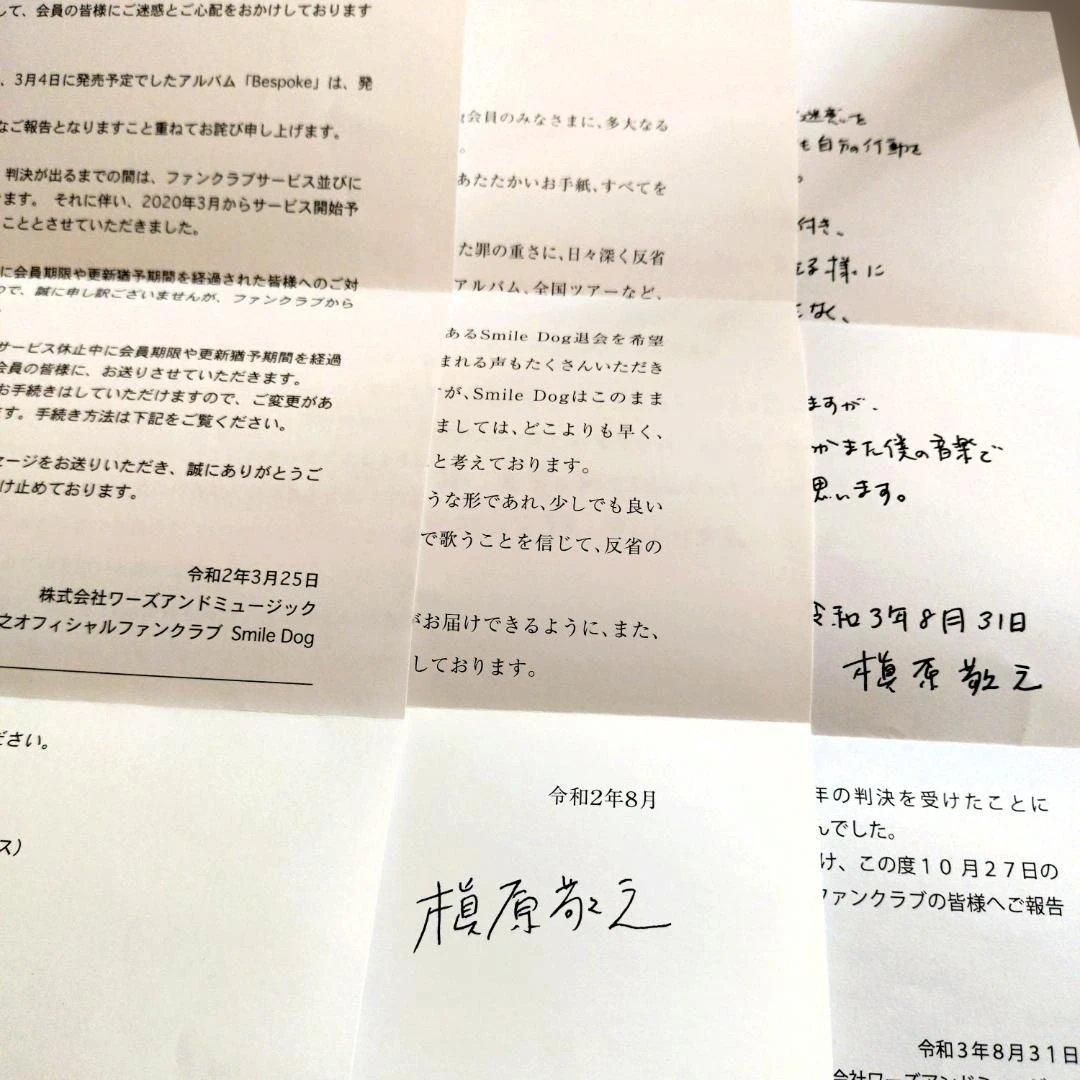 して、会員の皆様にご迷惑とご心配をおかけしております
、3月4日に発売予定でしたアルバム「Bespoke」は、発
なご報告となりますこと重ねてお詫び申し上げます。
判決が出るまでの間は、ファンクラブサービス並びに
きます。 それに伴い、2020年3月からサービス開始予
こととさせていただきました。
に会員期限や更新猶予期間を経過された皆様へのご対
ので、誠に申し訳ございませんが、ファンクラブから
サービス休止中に会員期限や更新猶予期間を経過
会員の皆様に、お送りさせていただきます。
お手続きはしていただけますので、ご変更があ
ます。手続き方法は下記をご覧ください。
セージをお送りいただき、誠にありがとうご
け止めております。
令和2年3月25日
株式会社ワーズアンドミュージック
之オフィシャルファンクラブ Smile Dog
ださい。
ス）
会員のみなさまに、多大なる
。
あたたかいお手紙、すべてを
た罪の重さに、日々深く反省
アルバム、全国ツアーなど、
あるSmile Dog退会を希望
まれる声もたくさんいただき
が、Smile Dogはこのまま
ましては、どこよりも早く、
と考えております。
うな形であれ、少しでも良い
で歌うことを信じて、反省の
がお届けできるように、また、
しております。
令和2年8月
槇原敬之
迷惑を
も自分の行動を
付き、
子様に
なく、
ますが、
かまた僕の音楽で
思います。
令和3年8月31日
槇原敬之
年の判決を受けたことに
んでした。
け、この度10月27日の
ファンクラブの皆様へご報告
令和3年8月31日
会社ワーズアンドミュージ